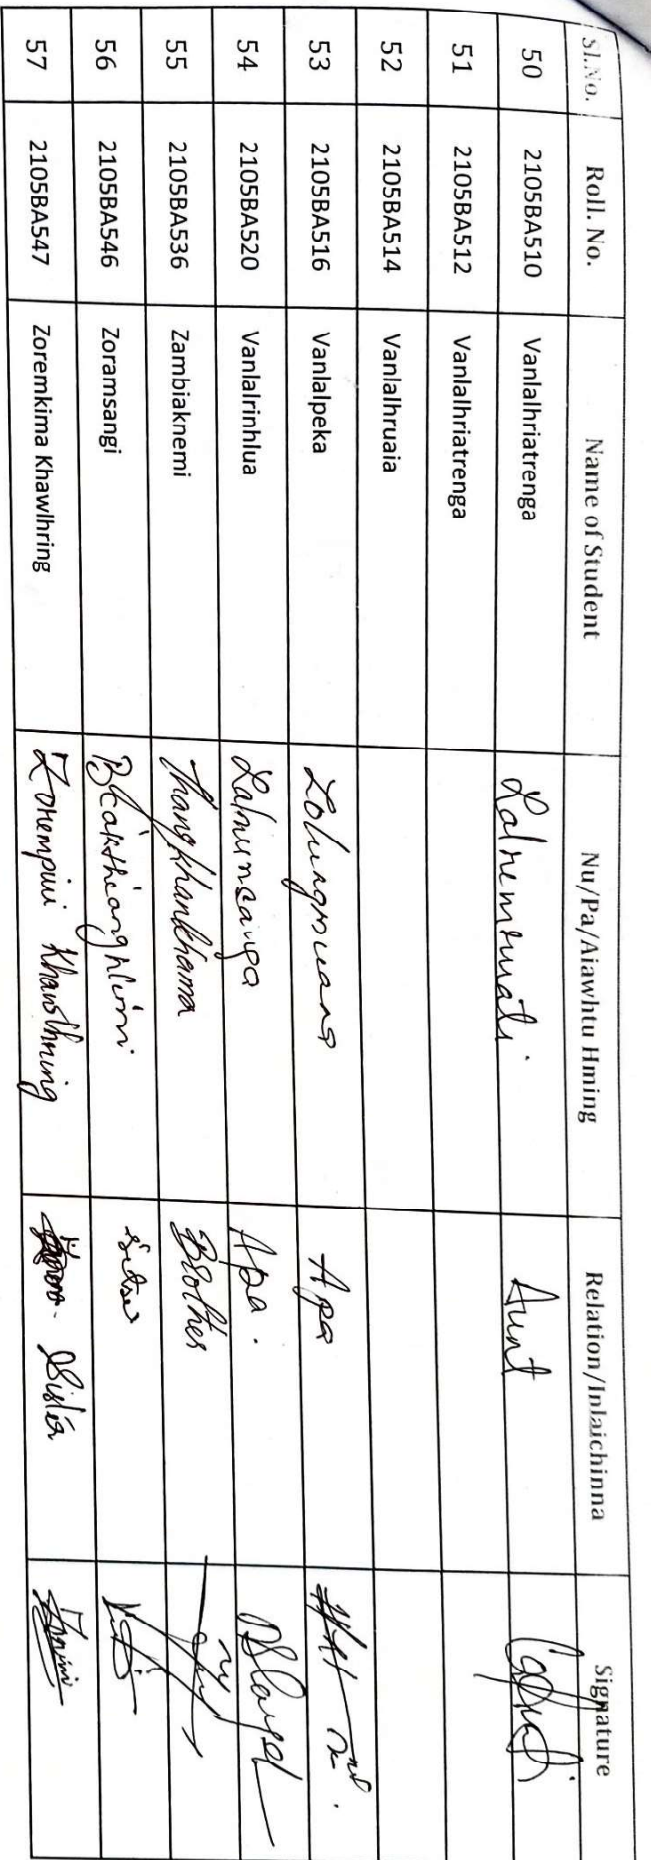 Sl.No. Roll. No. Name of Student Nu/Pa/Aiawhtu Hming Relation/Inlaichinna Signature
50 2105BA510 Vanlalhriatrenga Lalremruati Aunt
51 2105BA512 Vanlalhriatrenga
52 2105BA514 Vanlalhruaia
53 2105BA516 Vanlalpeka Apa
54 2105BA520 Vanlalrinhlua Lalnunsanga Apa.
55 2105BA536 Zambiaknemi Thangkhankhama Brother
56 2105BA546 Zoramsangi
57 2105BA547 Zoremkima Khawlhring Zorempuii Khawlhring Sister